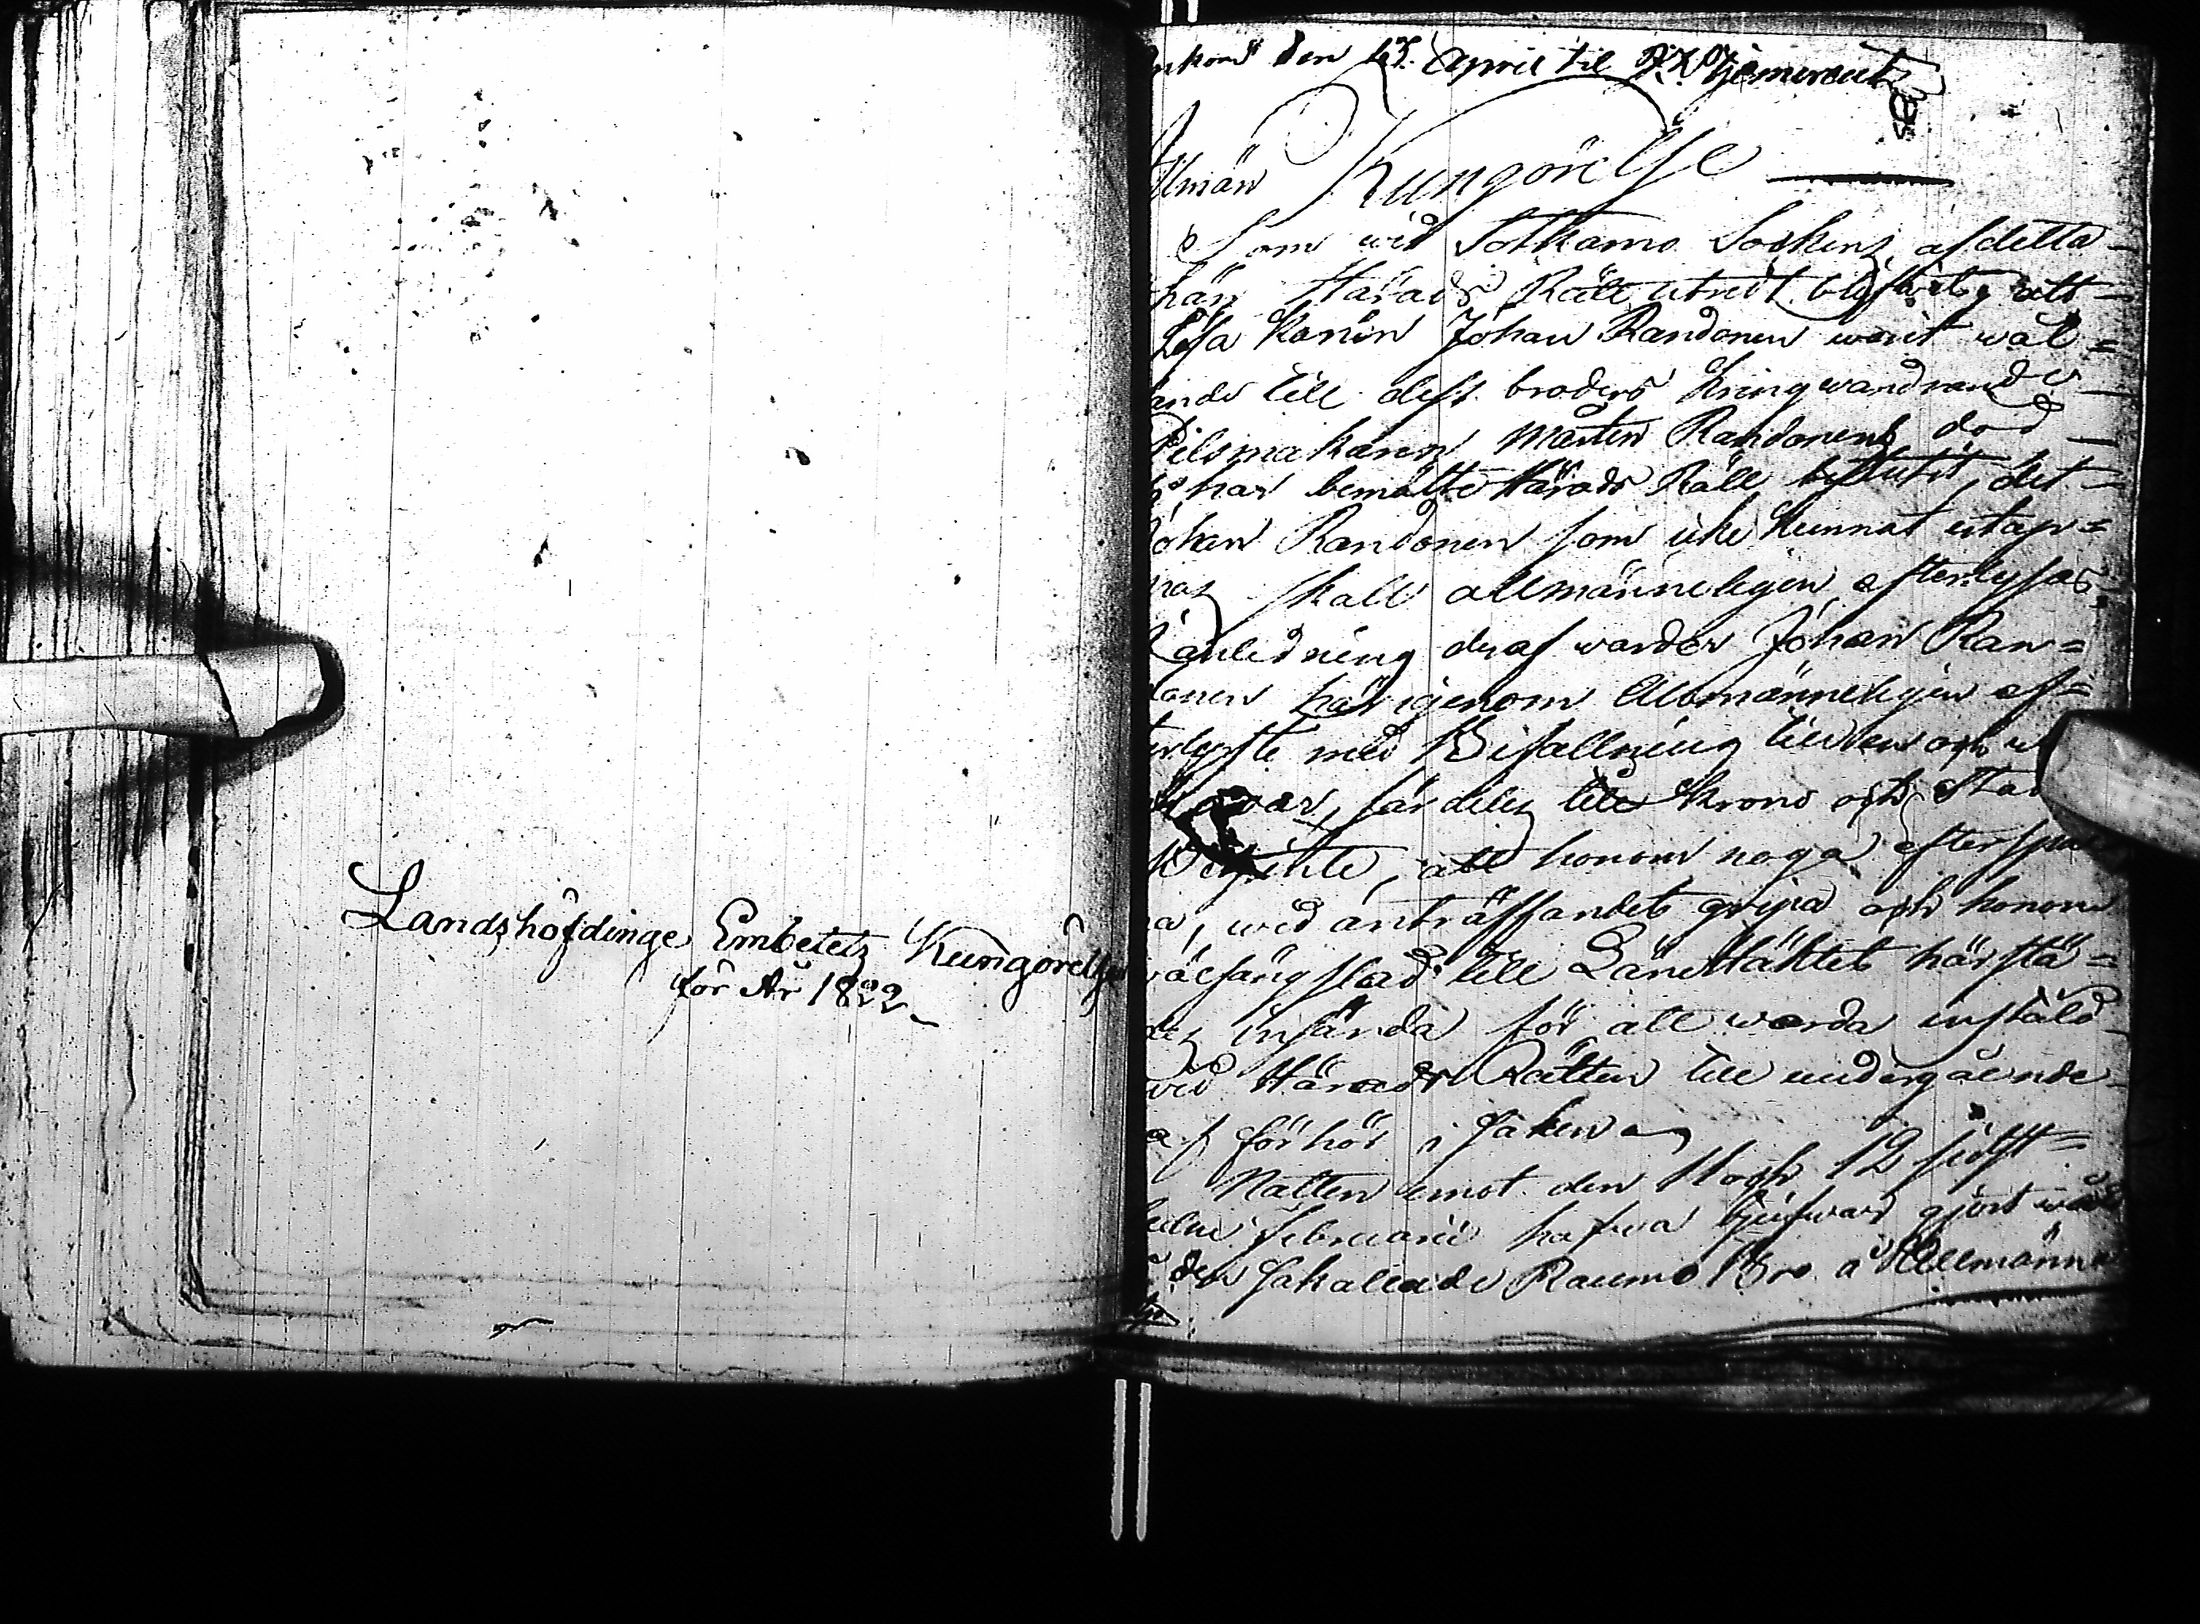 Landshöfdinge Embetets Kungörelser
för År 1822
nkom den April til
llmän Kungörelse
Som wid Sotkamo Sockens af detta
Härads Rätt utredt blifwit, att
Lösa Karlen Johan Randonen warit wål-
ande till dess broders Kringwandrande
Pilsmakaren Mårten Randonens död
har bemälte Härads Rätt beslutit, det
Johan Randonen som icke kunnat utspa-
nas skall allmänneligen efterlysas.
I anledning deraf warder Johan Ran-
donen härigenom Allmänneligen ef-
terlyste med Befallning till en och
hwar, särdeles till Krono och Stads
Betjente, att honom noga efterspa
na, wid anträffandet gripa och honom
wäl fängslad till Länehäktet härstä-
des insända för att warda instäld
wid Härads Rätten till undergående
af förhör i saken
Natten emot den 11 och 12 sidst-
ledne Februarii hafwa tjufwar gjort
den så kallade Raumo Bro å Allmänna